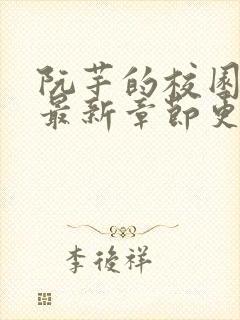 阮芋的校园
最新章节更
李後祥